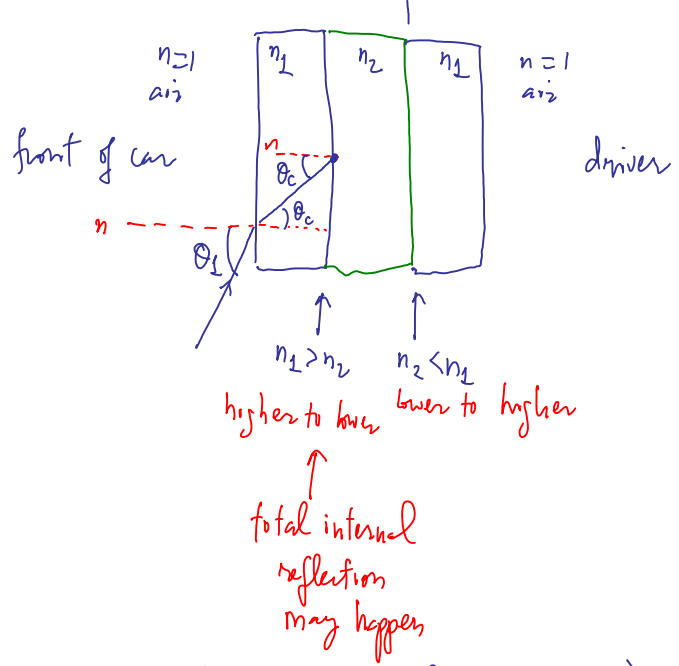 n=1
air
n1
n2
n1
n=1
air
front of car
driver
n
θc
θc
n
θ1
n1>n2
n2<n1
higher to lower
lower to higher
total internal
reflection
may happen